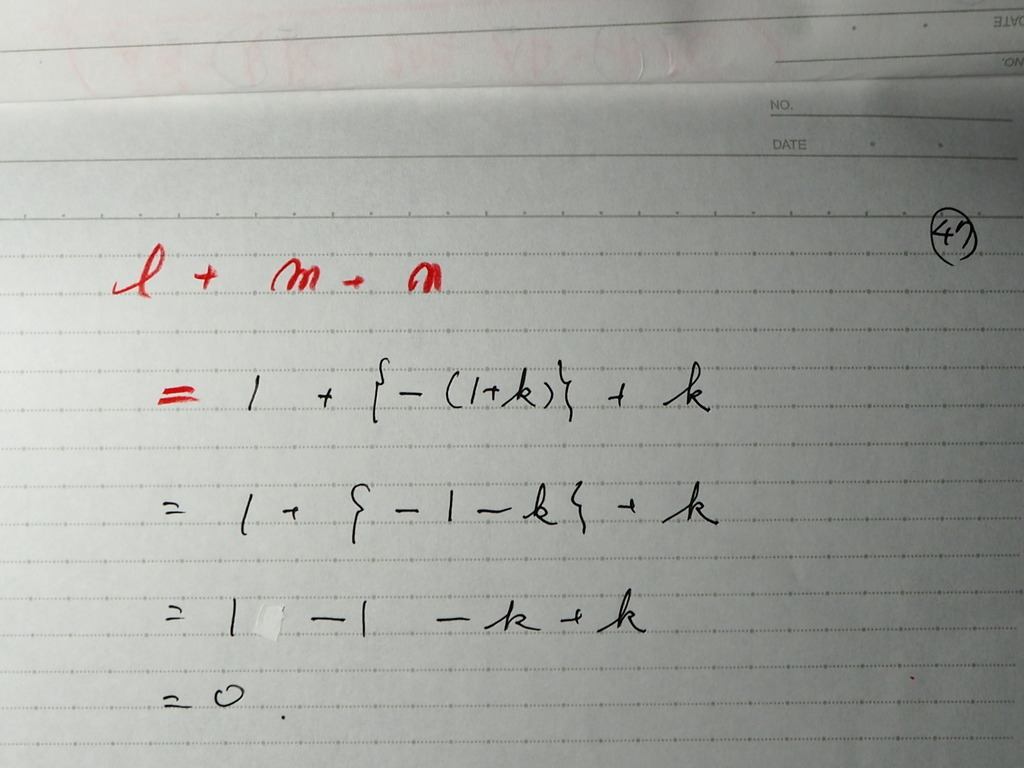 NO.
DATE
47
l + m + n
= 1 + {-(1+k)} + k
= 1 + {-1-k} + k
= 1 -1 -k+k
= 0.